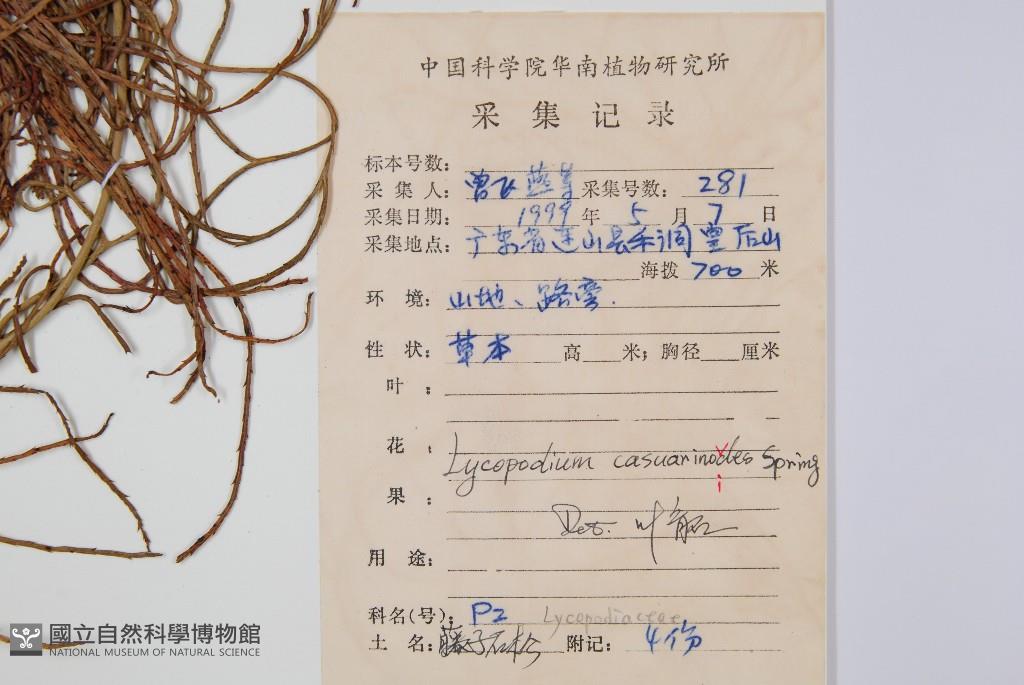 中国科学院华南植物研究所
采集记录
标本号数：
采集人：曾飞燕等 采集号数：281
采集日期：1999年5月7日
采集地点：广东省连山县禾洞 后山
海拨 700 米
环境：山地、路旁.
性状：草本 高 米；胸径 厘米
叶：
花：
Lycopodium casuarinodes Spring
i
果：
Det. 叶
用途：
科名(号)：P2 Lycopodiaceae
土名：藤子石松 附记：4份
國立自然科學博物館
NATIONAL MUSEUM OF NATURAL SCIENCE